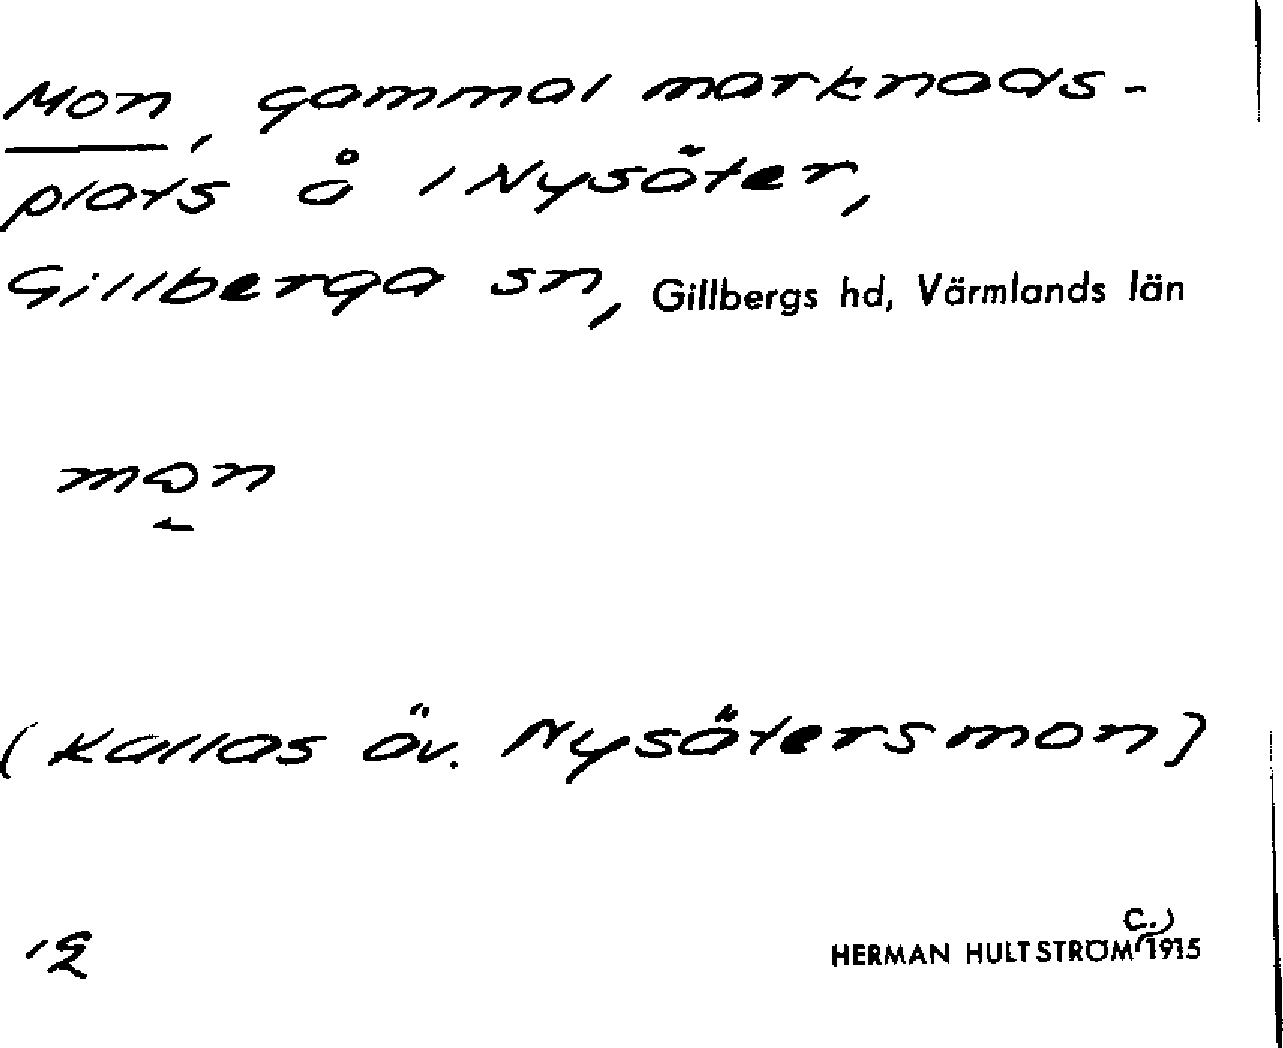 Mon, gammal marknads-
plats å i Nysäter,
Gillberga sn, Gillbergs hd, Värmlands län
mon
(Kallas äv. Nysätersmon)
HERMAN HULTSTRÖM c.) 1915